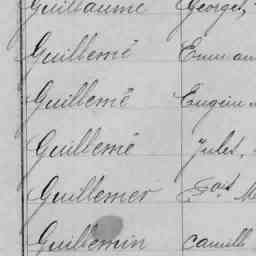 Guillaume Georges,
Guillemé
Guillemé Eugène
Guillemé Jules,
Guillemer
Guillemin Camille